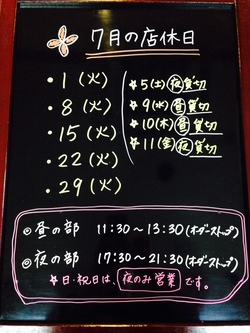 7月の店休日
・1(火)
・8(火)
・15(火)
・22(火)
・29(火)
☆5(土)夜貸切
☆9(水)昼貸切
☆10(木)昼貸切
☆11(金)夜貸切
◎昼の部 11:30～13:30(オーダーストップ)
◎夜の部 17:30～21:30(オーダーストップ)
☆日・祝日は、夜のみ営業です。